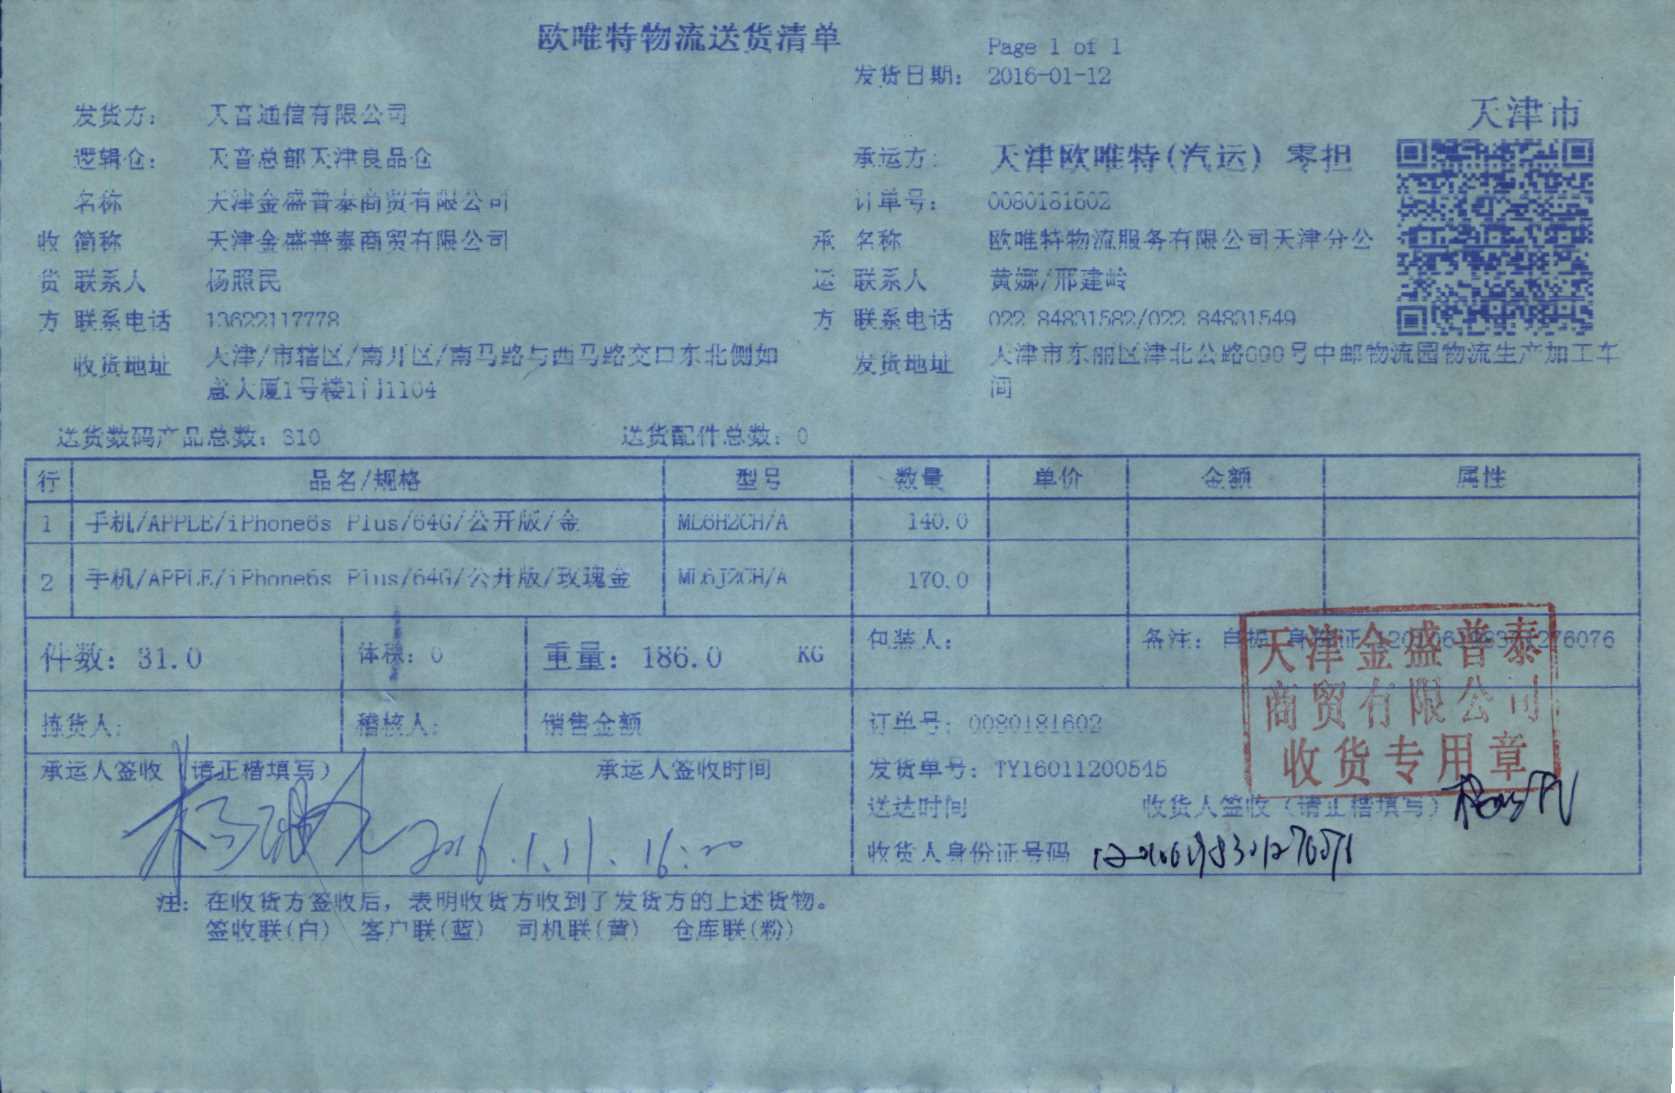 欧唯特物流送货清单
Page 1 of 1
发货日期： 2016-01-12
天津市
发货方： 天音通信有限公司
逻辑仓： 天音总部天津良品仓
承运方： 天津欧唯特(汽运) 零担
名称 天津金盛普泰商贸有限公司
订单号： 0080181602
收 简称 天津金盛普泰商贸有限公司
承 名称 欧唯特物流服务有限公司天津分公
货 联系人 杨照民
运 联系人 黄娜/邢建岭
方 联系电话 13622117778
方 联系电话 022 84831582/022 84831549
收货地址 天津/市辖区/南开区/南马路与西马路交口东北侧如
意大厦1号楼1门1104
发货地址 天津市东丽区津北公路699号中邮物流园物流生产加工车
间
送货数码产品总数：310 送货配件总数：0
行 品名/规格 型号 数量 单价 金额 属性
1 手机/APPLE/iPhone6s Plus/64G/公开版/金 ML6H2CH/A 140.0
2 手机/APPLE/iPhone6s Plus/64G/公开版/玫瑰金 ML6J2CH/A 170.0
件数：31.0 体积：0 重量：186.0 KG 包装人： 备注：自提 身份证
天津金盛普泰
商贸有限公司
收货专用章
拣货人： 稽核人： 销售金额 订单号：0080181602
承运人签收（请正楷填写） 承运人签收时间 发货单号：TY16011200545
2016.1.11. 16:20
送达时间 收货人签收（请正楷填写）
收货人身份证号码
注：在收货方签收后，表明收货方收到了发货方的上述货物。
签收联(白) 客户联(蓝) 司机联(黄) 仓库联(粉)